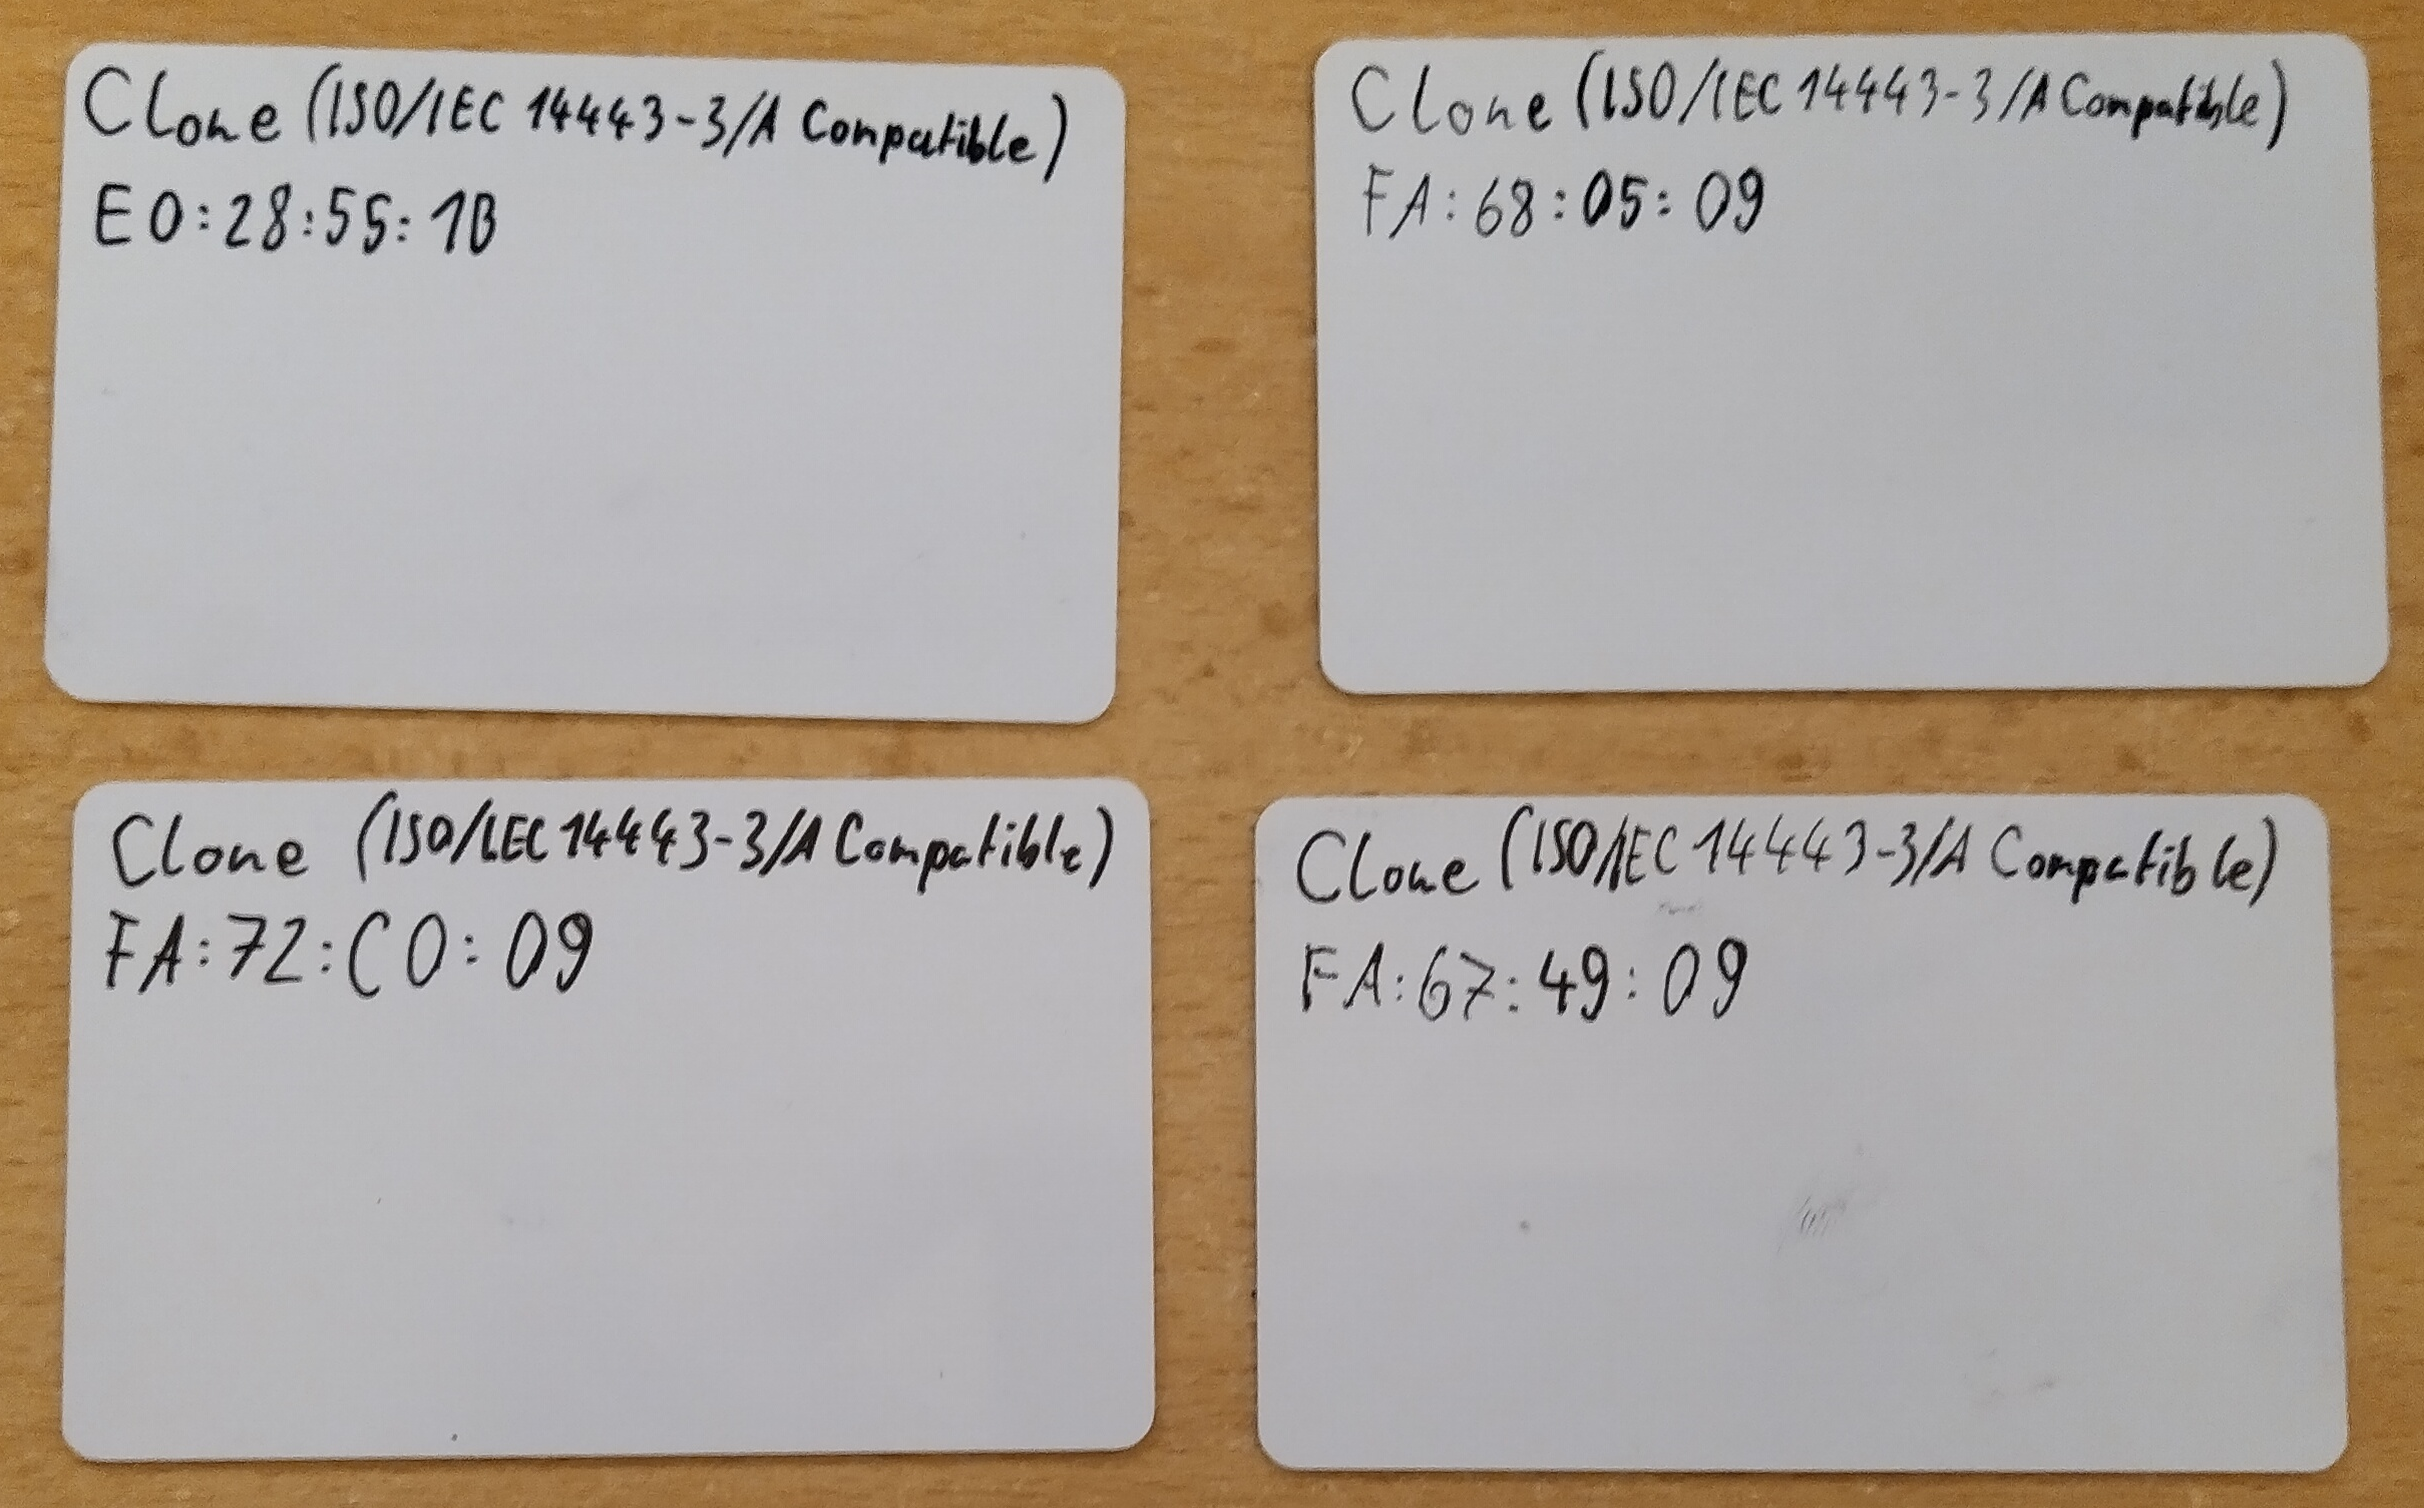 Clone (ISO/IEC 14443-3/A Compatible)
E0:28:55:1B
Clone (ISO/IEC 14443-3/A Compatible)
FA:68:05:09
Clone (ISO/IEC 14443-3/A Compatible)
FA:72:C0:09
Clone (ISO/IEC 14443-3/A Compatible)
FA:67:49:09